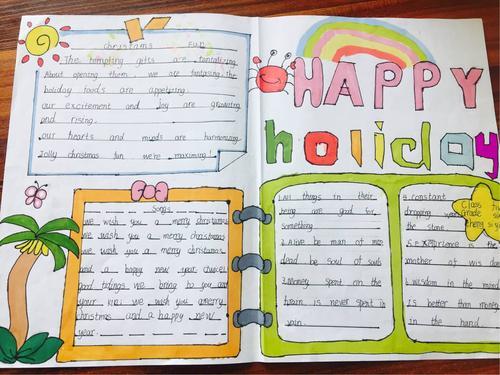 Christams Fun
The tempting gifts are tantalizing.
About opening them we are fantasing the
holiday foods are appetizing.
our excitement and Joy are growing
and rising.
our hearts and minds are harmonizing.
Jolly christmas fun we're maximing!
HAPPY
holiday
Songs
we wish you a merry christmas
we wish you a merry christmas
we wish you a merry christmas
and a happy new year
good tidings we bring to you and
your we wish you a merry
christmas and a happy new
year.
1.All things in their
being are good for
something.
2.Alive be man of men
dead be soul of souls
3.Money spent on the
brain is never spent in
vain.
4.constant
dropping wears
the stone
5.Experience is the
mother of wisdom
6.wisdom in the mind
is better than money
in the hand.
Class
Grade six